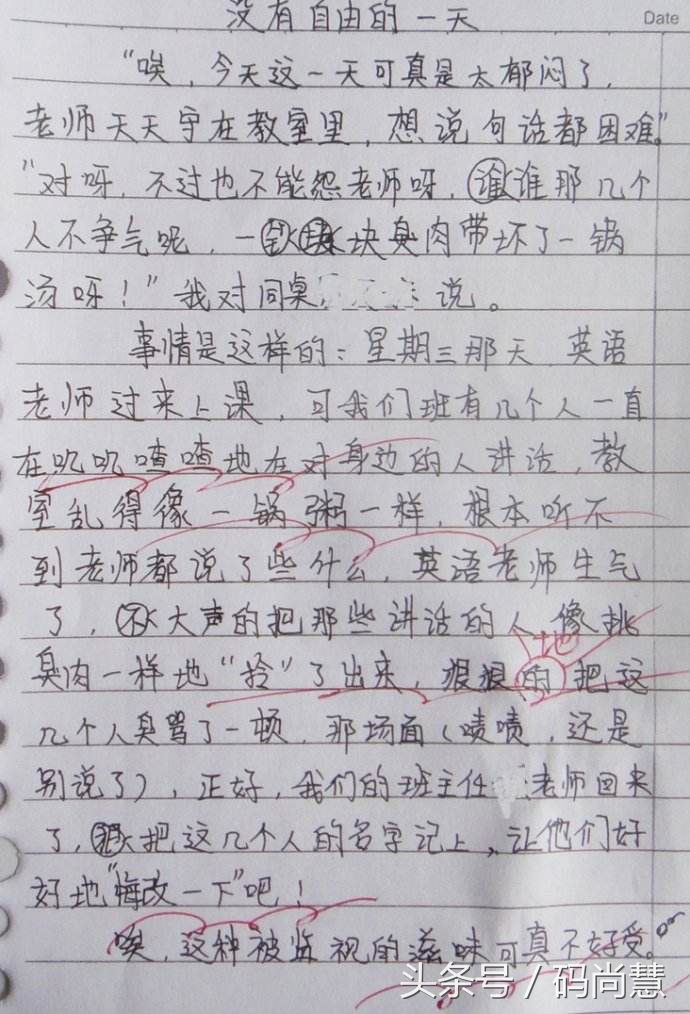 没有自由的一天
Date
“唉，今天这一天可真是太郁闷了，
老师天天守在教室里，想说句话都困难。”
“对呀，不过也不能怨老师呀，谁谁那几个
人不争气呢，一块臭肉带坏了一锅
汤呀！”我对同桌说。
事情是这样的：星期三那天，英语
老师过来上课，可我们班有几个人一直
在叽叽喳喳地在对身边的人讲话，教
室乱得像一锅粥一样，根本听不
到老师都说了些什么，英语老师生气
了，大声的把那些讲话的人像挑
地
臭肉一样地“拎”了出来，狠狠的把这
几个人臭骂了一顿，那场面（啧啧，还是
别说了），正好，我们的班主任老师回来
了，把这几个人的名字记上、让他们好
好地“悔改一下”吧！
唉，这种被监视的滋味可真不好受。
头条号/码尚慧